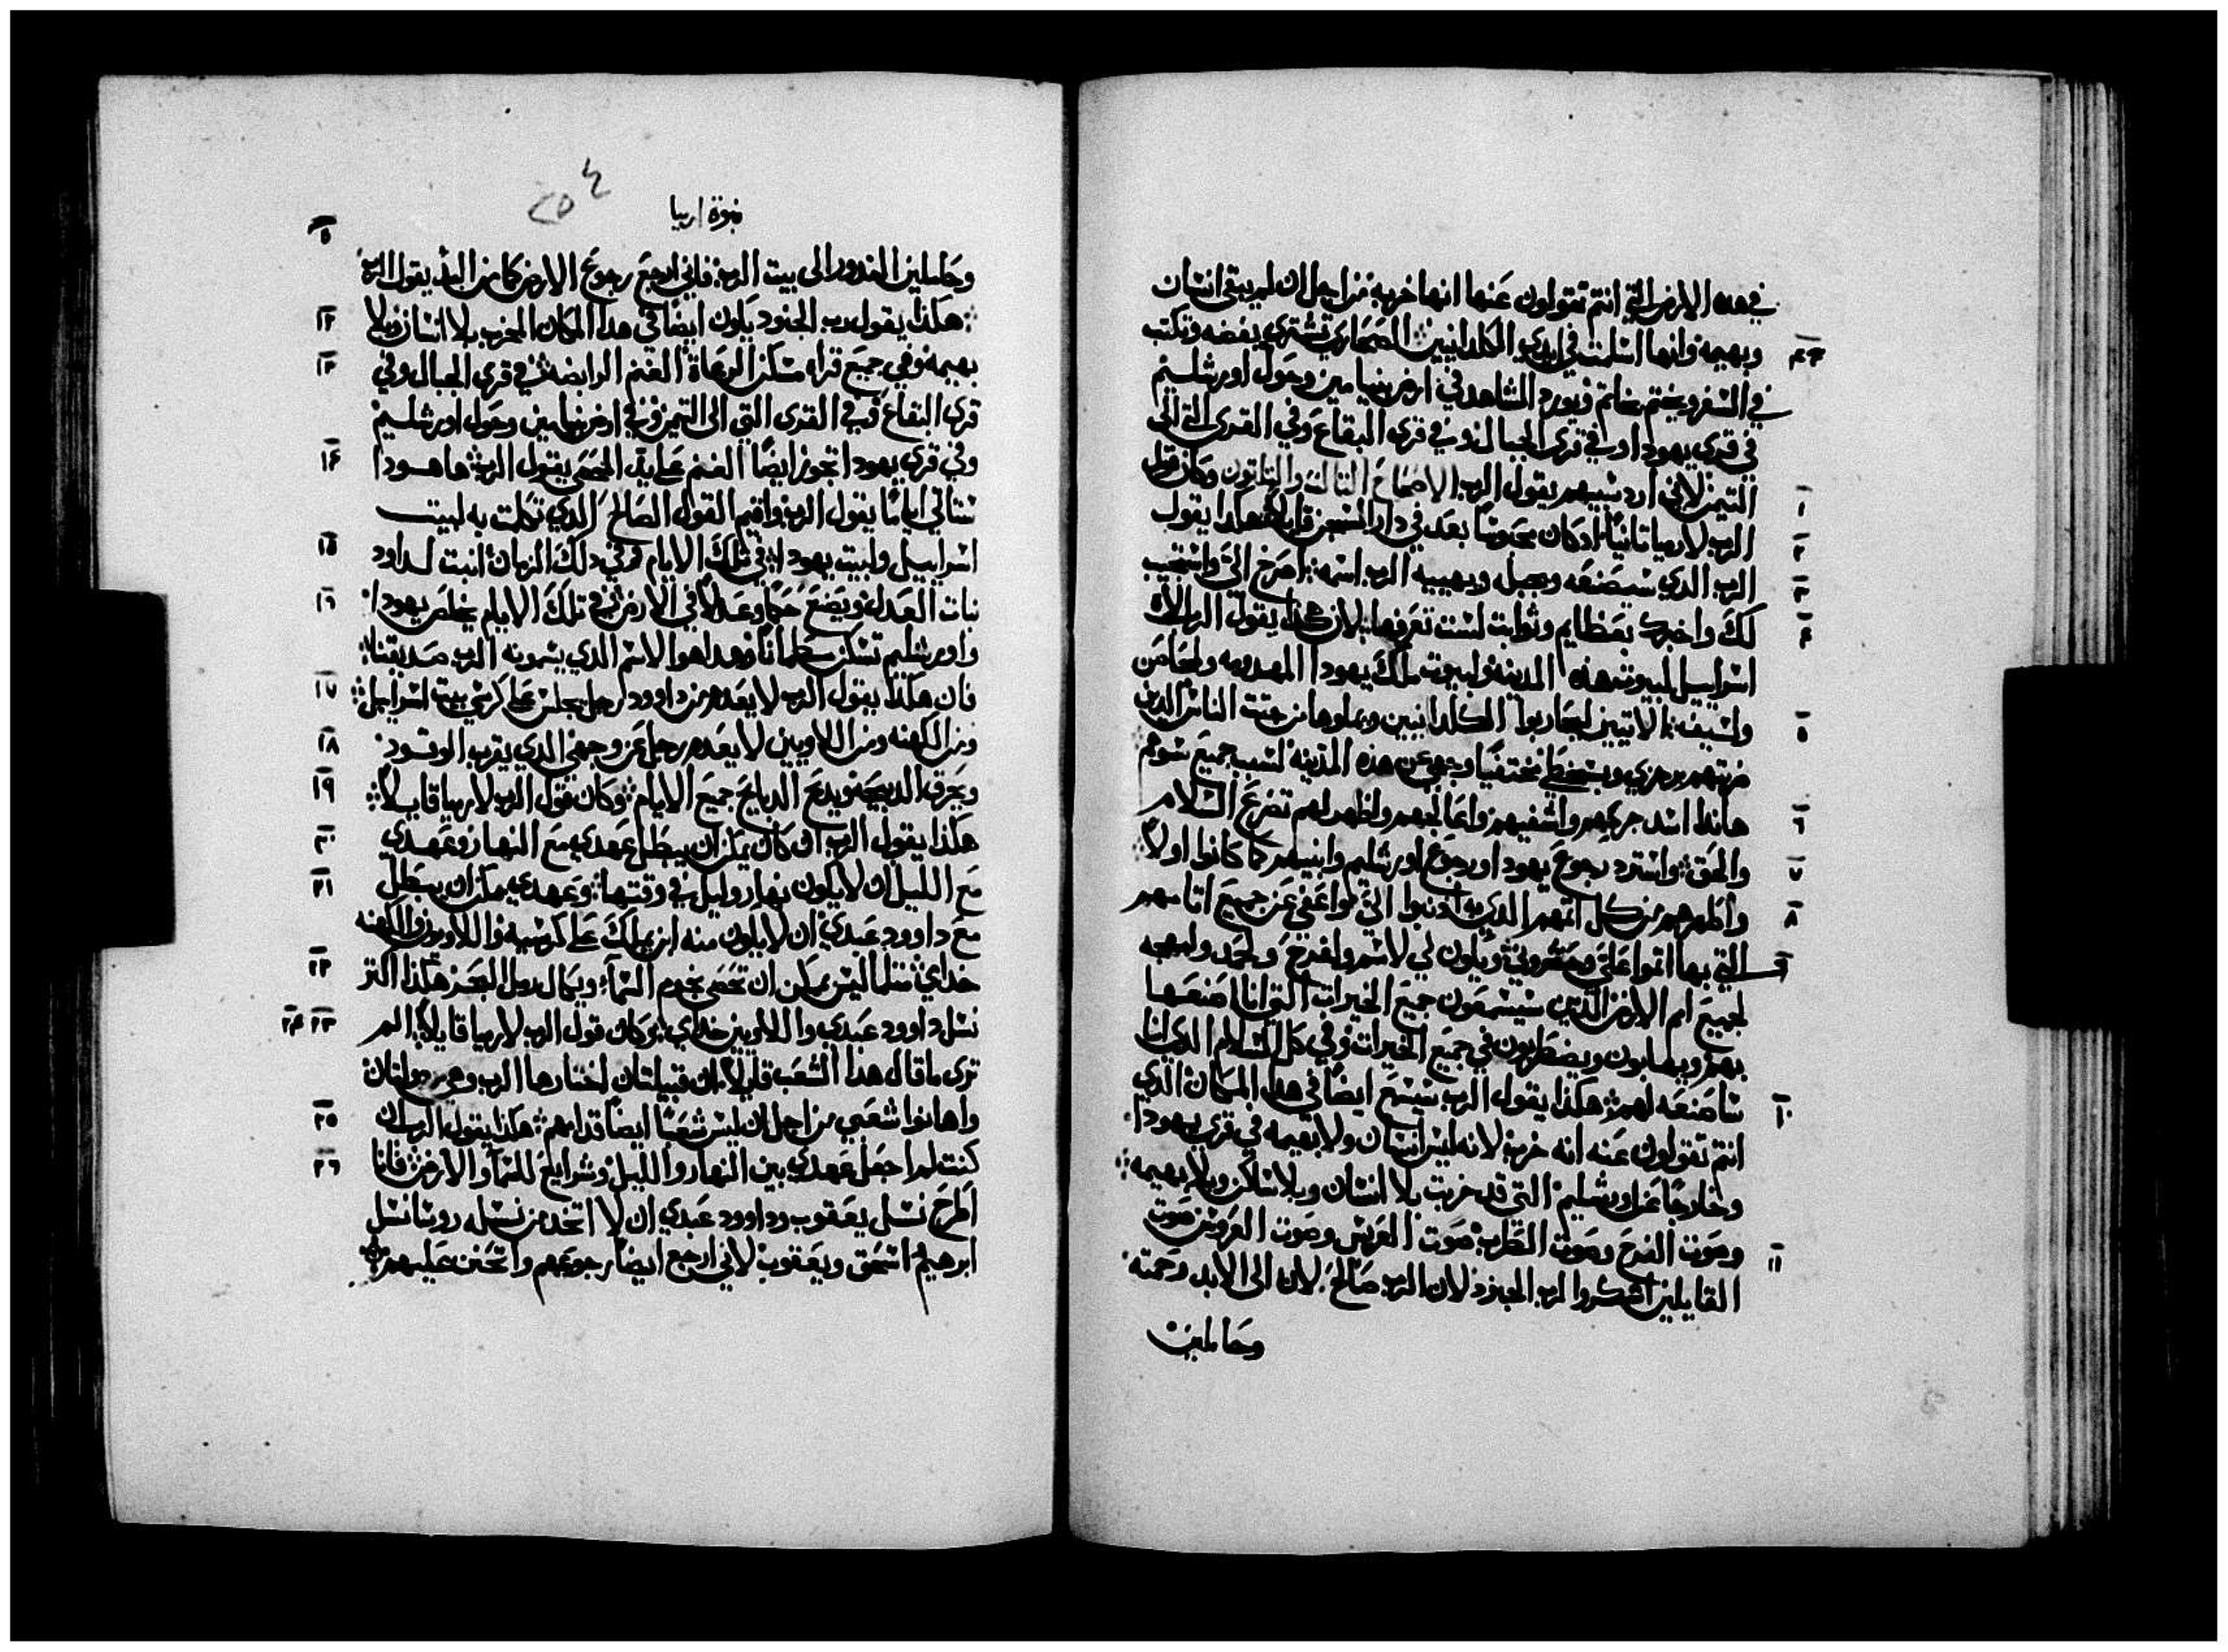 في هده الارض التي انتم تقولون عنها انها خربه من اجل ان ليس يبقى انسان
وبهيمه وانها اسلمت في ايدي الكلدانيين الصحاري تشترى بفضه وتكتب
٤٣
في السفر ويختم بخاتم ويورد الشاهد في ارض بنيامين وحول اورشليم
في قرى يهودا وفي قرى الجبال وفي قرى البقاع وفي القرى التي الى
التيمن لاني ارد سبيهم يقول الرب الاصحاح التالت والتلتون وكان قول
١
الرب لارميا تانيا اد كان محبوسا بعد في دار السجن قايلا هكدا يقول
٢
الرب الدي سيصنعه ويجبله ويهييه الرب اسمه اصرخ الي واستجيب
٣
لك واخبرك بعظايم وثوابت لست تعرفها لان هكدا يقول الرب الاه
٤
اسراييل لبيوت هده المدينه ولبيوت ملك يهودا المهدومه ولمحاصن
وسيف الاتيين ليحاربوا الكلدانيين ويملوها من جتت الناس الدين
٥
ضربتهم برجزي وبسخطي مختفيا وجهي عن هده المدينه لسبب جميع شرهم
هاندا اسد جرحهم واشفيهم واعالجهم واظهر لهم تضرع السلام
٦
والحق واسترد رجوع يهودا ورجوع اورشليم وابنيهم كما كانوا اولا
٧
واطهرهم من كل اتمهم الدي به ادنبوا الي واعفي عن جميع اتامهم
٨
التي بها اتموا علي ويكون لي لاسم ولفرح ولحمد ولبهجه
٩
لجميع امم الارض الدين سيسمعون جميع الخيرات التي انا اصنعها
بهم ويهابون ويضطربون في جميع الخيرات وفي كل السلام الدي انا
ساصنعه لهم هكدا يقول الرب سيسمع ايضا في هدا المكان الدي
١٠
انتم تقولون عنه انه خرب لانه ليس انسان ولا بهيمه في قرى يهودا
وخارجا عن اورشليم التي قد خربت بلا انسان وبلا ساكن وبلا بهيمه
وصوت الفرح وصوت الطرب صوت العريس وصوت العروس صوت
١١
القايلين اشكروا لرب الجنود لان الرب صالح لان الى الابد رحمته
وحاملين
نبوة ارميا
٢٥٤
وحاملين الندور الى بيت الرب فاني ارجع رجوع الارض كما من البدء يقول الرب
هكدا يقول رب الجنود يكون ايضا في هدا المكان الخرب بلا انسان وبلا
١٢
بهيمه وفي جميع قراه مسكن الرعاة الغنم الرابضه في قرى الجبال وفي
١٣
قرى البقاع وفي القرى التي الى التيمن وفي ارض بنيامين وحول اورشليم
وفي قرى يهودا تجوز ايضا الغنم على يد المحصي يقول الرب ها هودا
١٤
ستاتي اياما يقول الرب واقيم القول الصالح الدي تكلمت به لبيت
اسراييل ولبيت يهودا في تلك الايام وفي دلك الزمان انبت لداود
١٥
نبات العدل ويصنع حكما وعدلا في الارض في تلك الايام يخلص يهودا
١٦
واورشليم تسكن مطمانا وهدا هوا الاسم الدي يسمونه الرب صديقنا
فان هكدا يقول الرب لا يعدم من داوود رجل يجلس على كرسي بيت اسراييل
١٧
ومن الكهنه ومن اللاويين لا يعدم رجل عن وجهي الدي يقرب الوقود
١٨
ويحرق الدبيحه ويدبح الدبايح جميع الايام وكان قول الرب لارميا قايلا
١٩
هكدا يقول الرب ان كان يمكن ان يبطل عهدي مع النهار وعهدي
٢٠
مع الليل ان لا يكون نهار وليل في وقتها وعهدي يمكن ان يبطل
٢١
مع داوود عبدي ان لا يكون منه ابن يملك على كرسيه واللاويون والكهنه
خدامي متلما ليس يمكن ان تحصى نجوم السما ويكال رمل البحر هكدا اكتر
٢٢
نسل داوود عبدي واللاويين خدامي وكان قول الرب لارميا قايلا الم
٢٣ ٢٤
ترى ما قال هدا الشعب قايلا ان قبيلتان اختارها الرب وهن مرذولتان
واهانوا شعبي من اجل ان ليس شعبا ايضا قدامهم هكدا يقول الرب ان
٢٥
كنت لم اجعل عهدي بين النهار والليل وشرايع للسما والارض فانا
٢٦
اطرح نسل يعقوب وداوود عبدي ان لا اتخد من نسله روسا نسل
ابرهيم اسحق ويعقوب لاني ارجع ايضا رجوعهم واتحنن عليهم